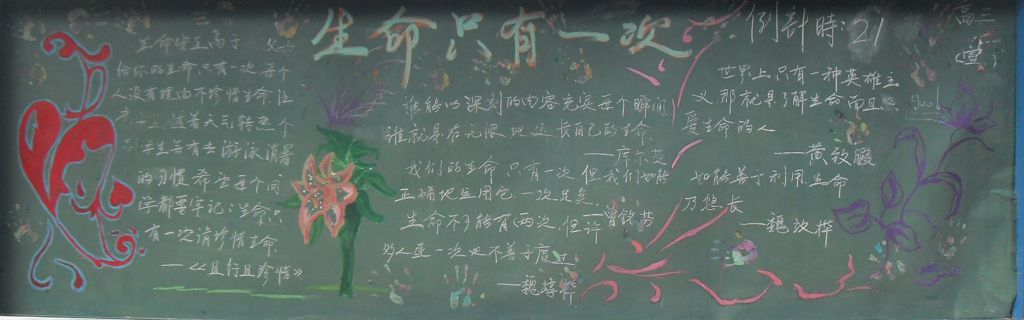 生命只有一次
倒計時:21
高三
生命安全高于
给你的生命只有一次 每个
人没有理由不珍惜生命,注
随着天气转热 个
别学生会有去游泳消暑
的习惯,希望每个同
学都要牢记:生命只
有一次请珍惜生命.
——《且行且珍惜》
谁能以深刻的内容充实每个瞬间,
谁就是在无限地延长自己的生命.
——库尔茨
我们的生命只有一次,但我们如能
正确地运用它,一次足矣.
生命不可能有两次,但许
多人连一次也不善于度过
世界上只有一种英雄主
义那就是了解生命而且
爱生命的人
如能善于利用生命
乃悠长